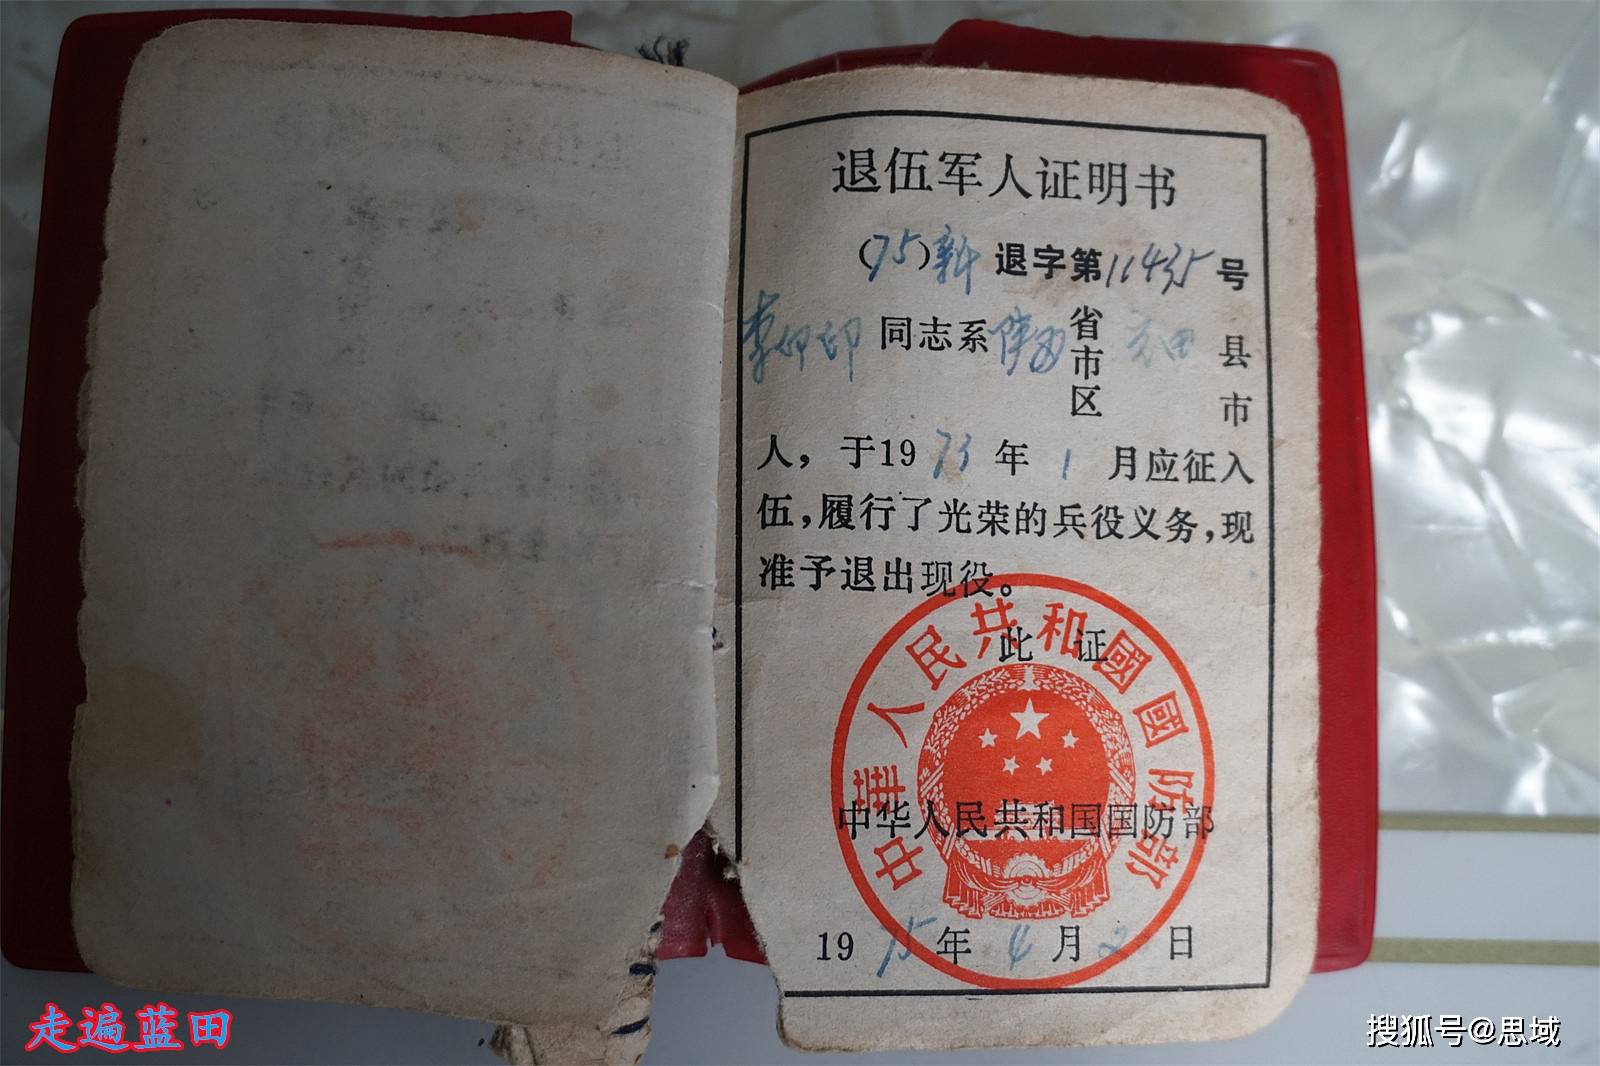 退伍军人证明书
(75)新 退字第11435号
李仰印 同志系陕西省市区 蓝田县市
人，于1973年1月应征入
伍，履行了光荣的兵役义务，现
准予退出现役。
此 证
中华人民共和國國防部
中华人民共和国国防部
1975年4月2日
走遍蓝田
搜狐号@思域